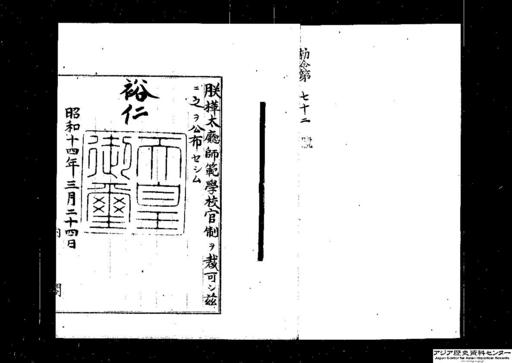 勅令第七十二號
朕樺太廳師範學校官制ヲ裁可シ茲
ニ之ヲ公布セシム
裕仁
天皇
御璽
昭和十四年三月二十四日
内閣
アジア歴史資料センター
Japan Center for Asian Historical Records